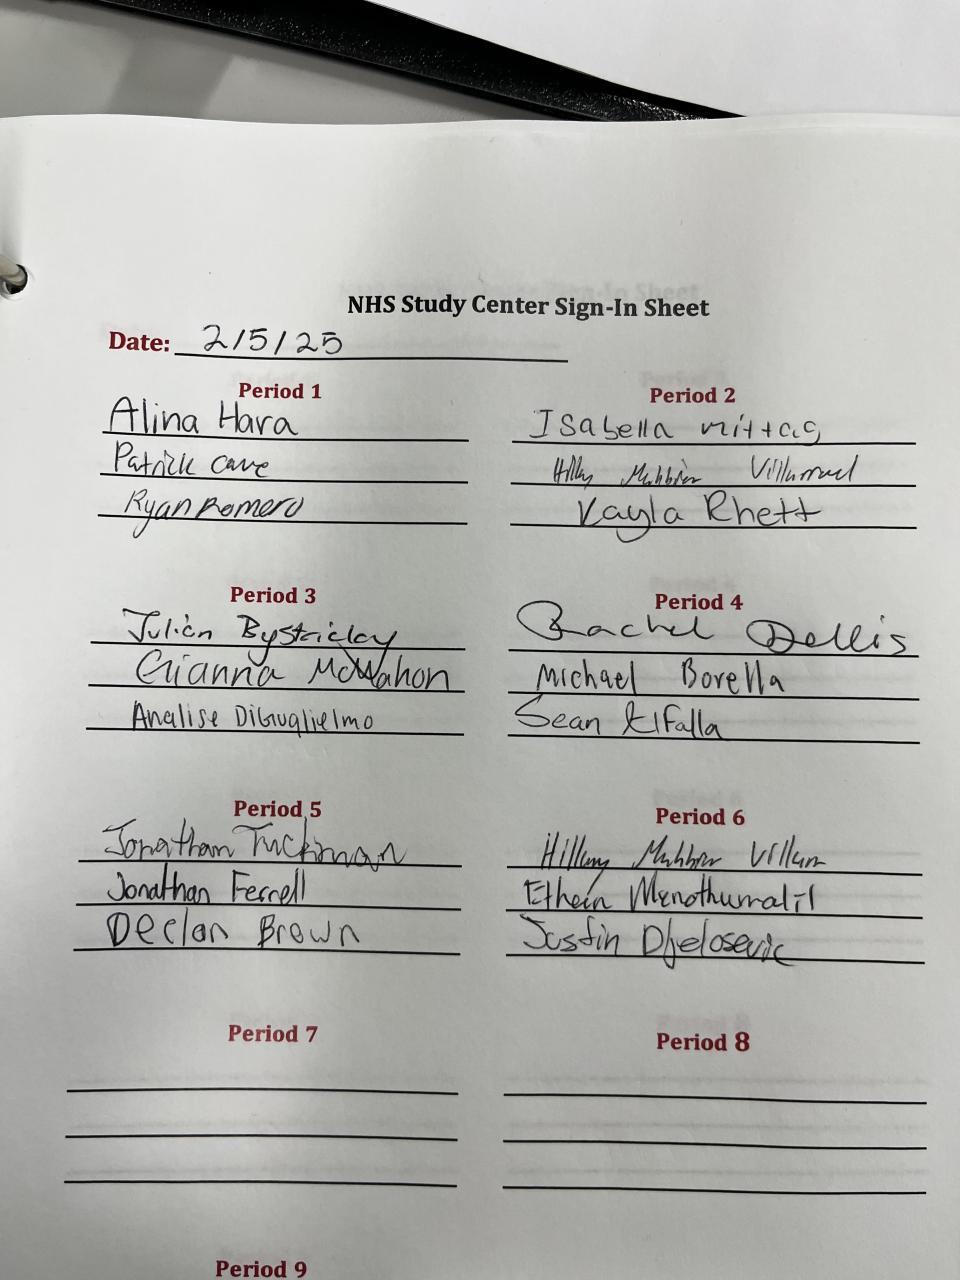 NHS Study Center Sign-In Sheet
Date: 2/5/25
Period 1
Alina Hara
Patrick Cave
Ryan Romero
Period 2
Isabella Mittag
Kayla Rhett
Period 3
Julian
Gianna McMahon
Analise DiGuglielmo
Period 4
Rachel Dellis
Michael Borella
Sean Elfalla
Period 5
Jonathan Tuckman
Jonathan Ferrell
Declan Brown
Period 6
Hillary
Justin Djelosevic
Period 7
Period 8
Period 9